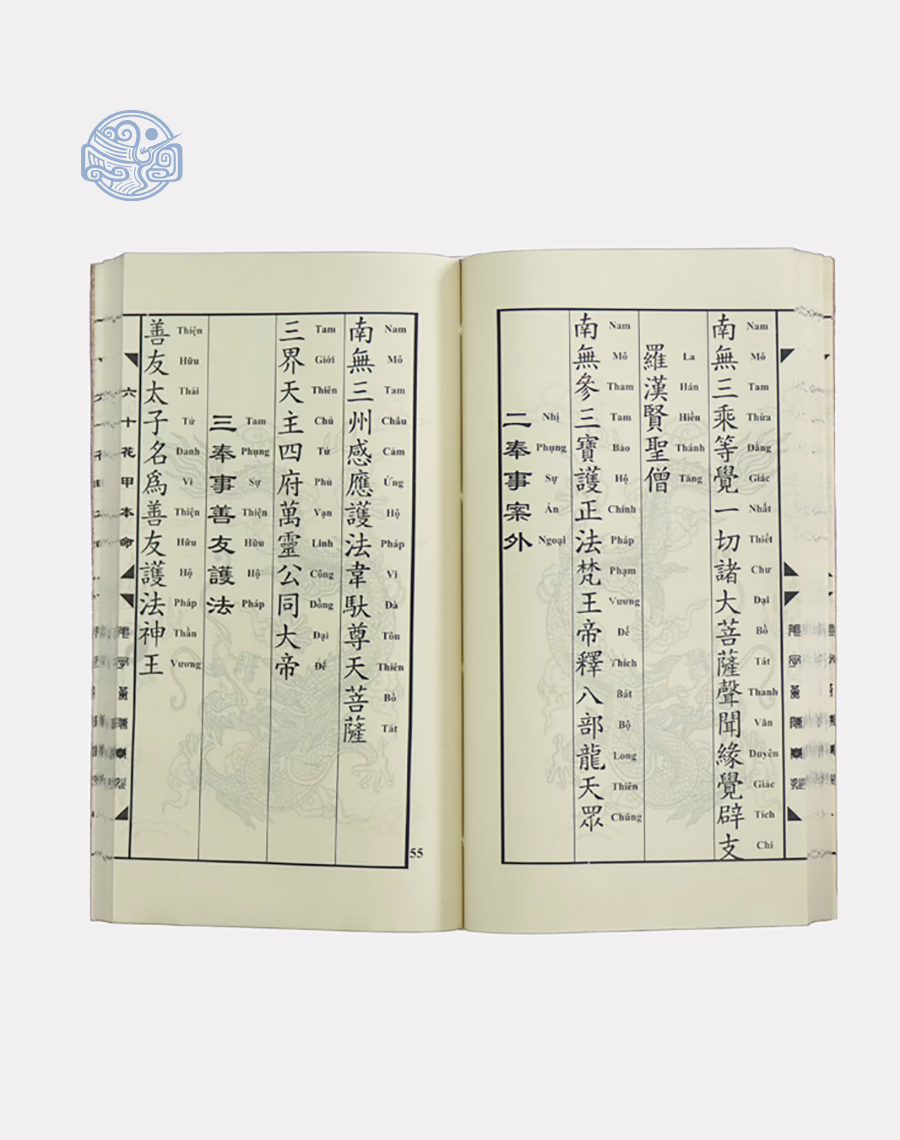 南無三乘等覺一切諸大菩薩聲聞緣覺辟支
Nam Mô Tam Thừa Đẳng Giác Nhất Thiết Chư Đại Bồ Tát Thanh Văn Duyên Giác Tích Chi
羅漢賢聖僧
La Hán Hiền Thánh Tăng
南無參三寶護正法梵王帝釋八部龍天眾
Nam Mô Tham Tam Bảo Hộ Chính Pháp Phạm Vương Đế Thích Bát Bộ Long Thiên Chúng
二奉事案外
Nhị Phụng Sự Án Ngoại
南無三州感應護法韋馱尊天菩薩
Nam Mô Tam Châu Cảm Ứng Hộ Pháp Vi Đà Tôn Thiên Bồ Tát
三界天主四府萬靈公同大帝
Tam Giới Thiên Chủ Tứ Phủ Vạn Linh Công Đồng Đại Đế
三奉事善友護法
Tam Phụng Sự Thiện Hữu Hộ Pháp
善友太子名爲善友護法神王
Thiện Hữu Thái Tử Danh Vi Thiện Hữu Hộ Pháp Thần Vương
六十花甲本命
55